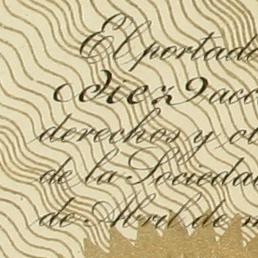 El portado
diez acc
derechos y ot
de la Sociedad
de Abril de m